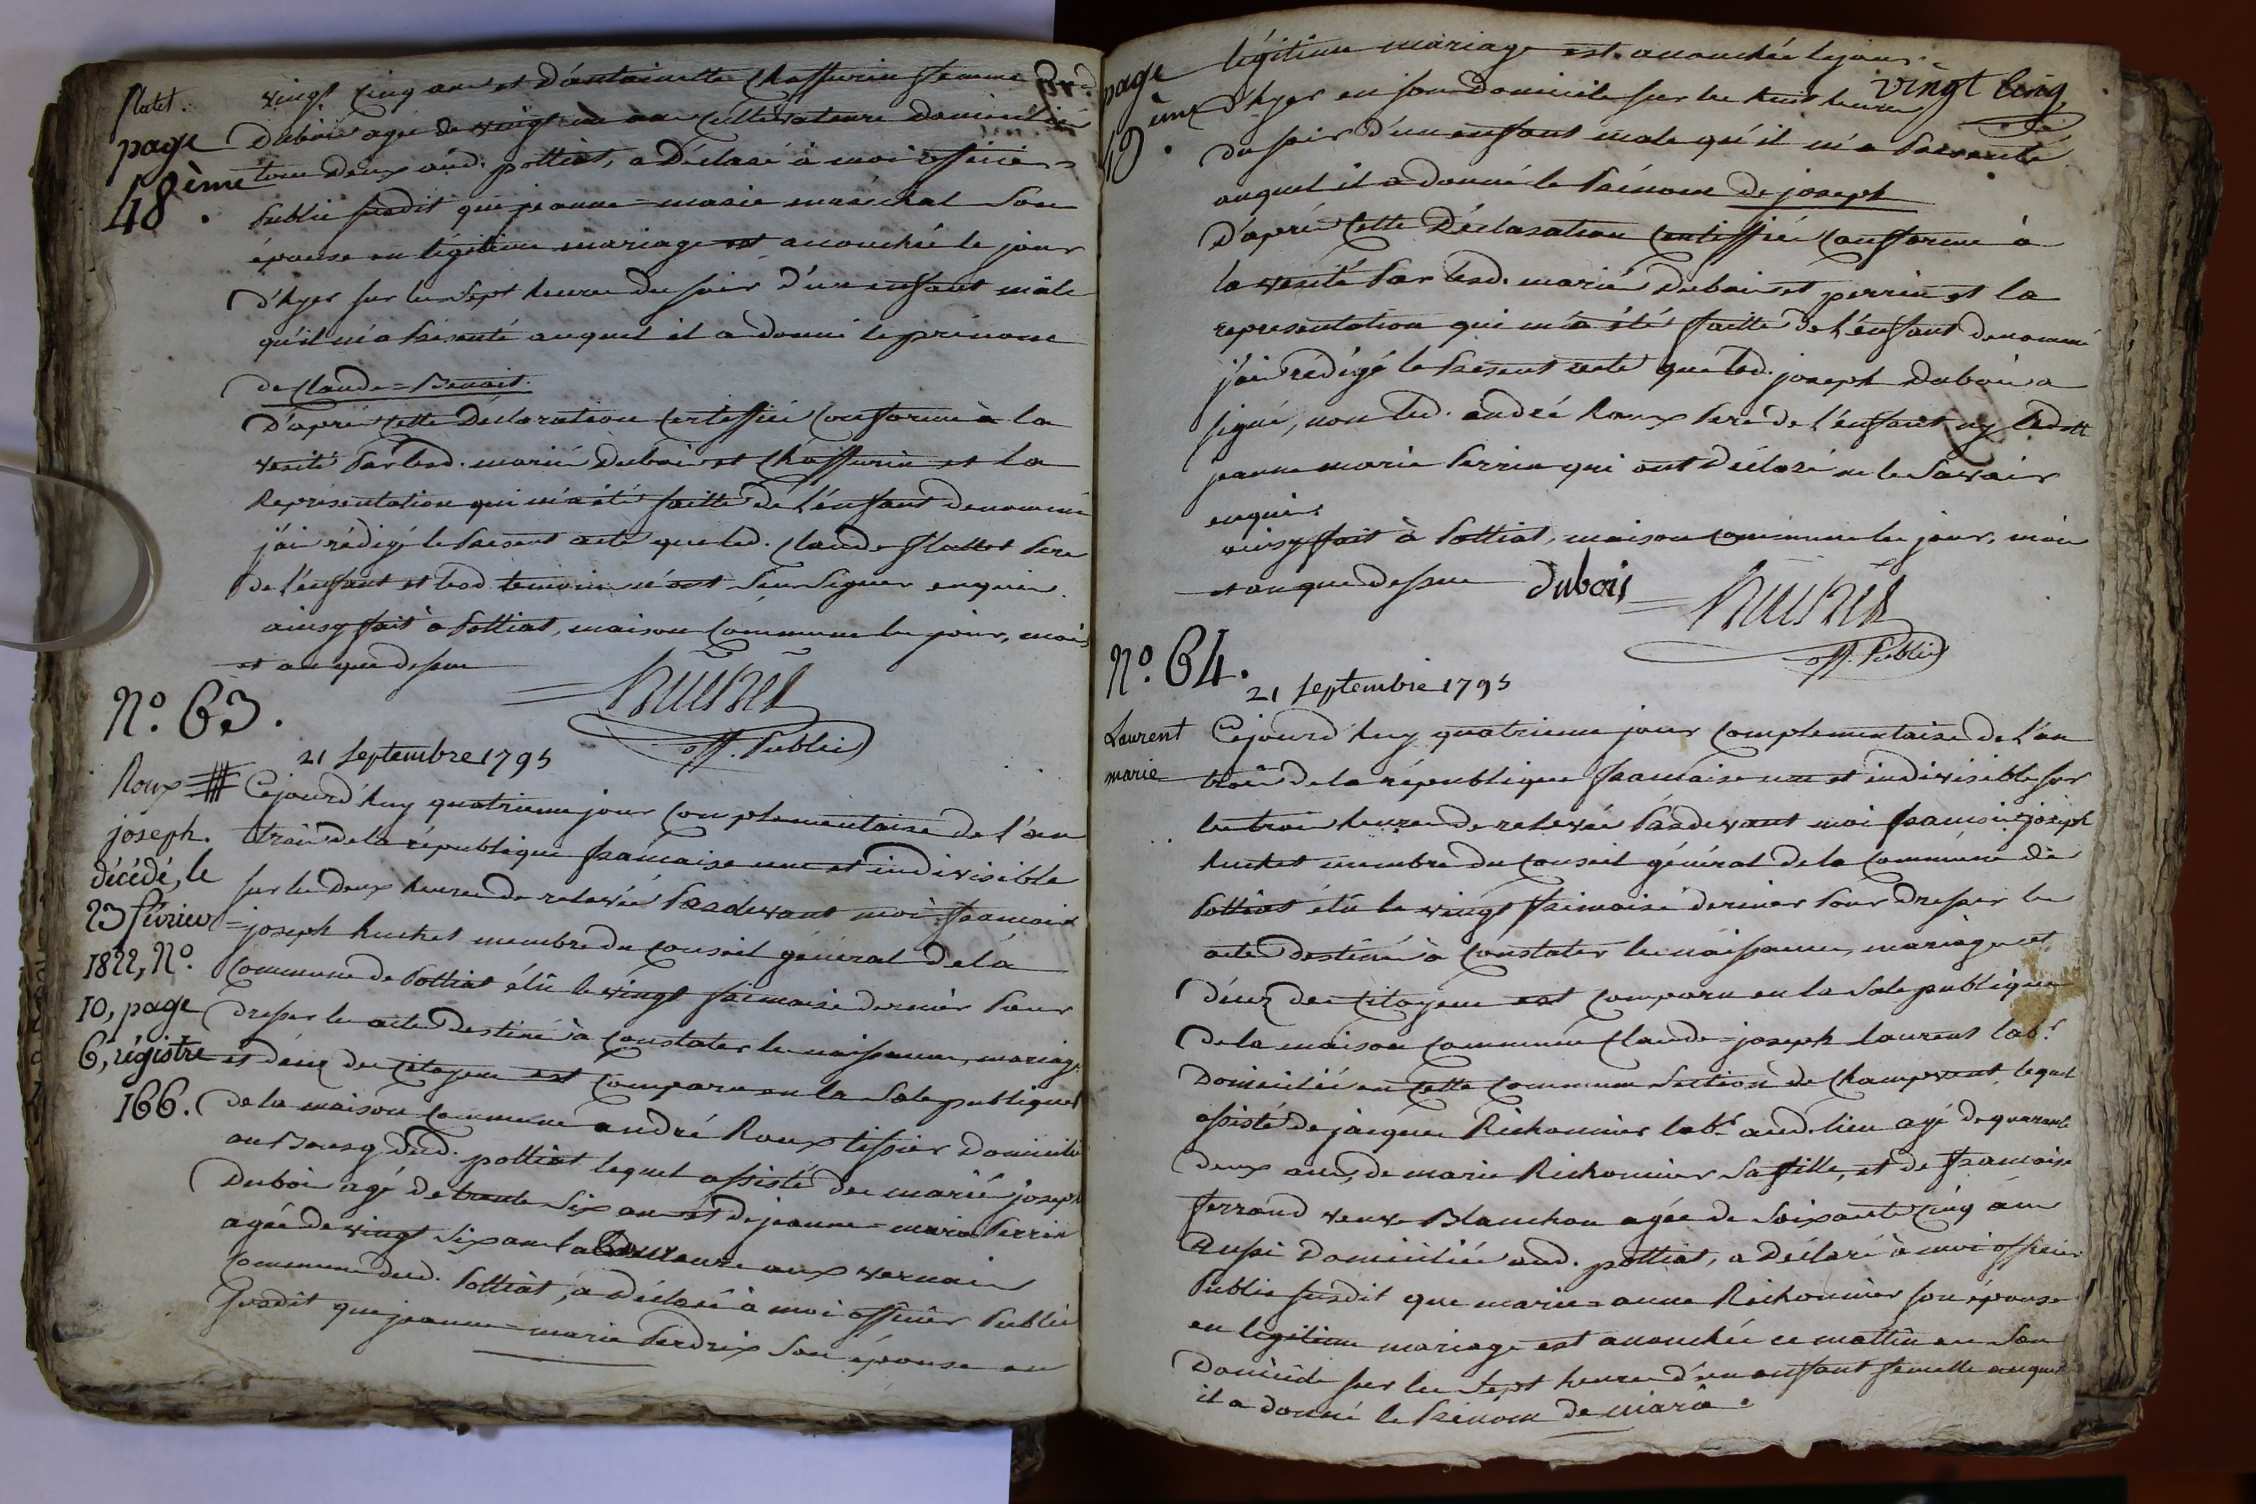 flatet.
page
48ème.
vingt cinq ans et d'antoinette Chaffurin femme
Dubois agée de vingt un an Cultivateurs Domiciliés
tous deux aud. polliat, a Déclaré à moi officier
Public susdit que jeanne=marie maréchal son
épouse en légitime mariage est accouchée le jour
d'hyer sur les sept heures du soir d'un enfant mâle
qu'il m'a Présenté auquel il a donné le prénom
de Claude=Benoit.
D'après cette Déclaration Certiffiée Conforme à la
vérité Par lesd. mariés Dubois et Chaffurin et la
Représentation qui m'a été faitte de l'énfant denommé
j'ai rédigé le Présent acte que led. Claude flattet Pere
de l'énfant et lesd. temoins n'ont Sçu Signer enquis.
ainsy fait à Polliat, maison Commune les jour, mois
et an que dessus
huchet
off. Public
N.º 63.
21 septembre 1795
Roux
joseph.
décédé, le
23 février
1822, N.º
10, page
6, régistre
166.
Cejourd'huy quatrieme jour complementaire de l'an
trois de la république française une et indivisible
sur les Deux heures de relevée Pardevant moi françois
=joseph huchet membre du conseil général de la
Commune de Polliat élû le vingt frimaire dernier Pour
dresser les actes Destinés à Constater les naissances, mariages
et décès des Citoyens est comparu en la Sale publique
de la maison Commune andré Roux tissier Domicilié
au Bourg dud. polliat lequel assisté des mariés joseph
Dubois agé de trente six ans et de jeanne=marie Perrin
agée de vingt six ans laboureurs aux vernais
Commune dud. Polliat, a Déclaré à moi officier Public
susdit que jeanne=marie Perdrix son épouse en
page
49ème.
vingt cinq
légitime mariage est accouchée le jour
d'hyer en son domicile sur les huit heures
du soir d'un enfant male qu'il m'a Présenté
auquel il a donné le Prénom de joseph
D'après Cette Déclaration Certiffiée Conforme à
la vérité Par lesd. mariés Dubois et perrin et la
représentation qui m'a été faitte de l'énfant denommé
j'ai rédigé le Présent acte que led. joseph Dubois a
signé, non led. andré Roux Pere de l'énfant ny ladtte
jeanne marie Perrin qui ont Déclaré ne le Savoir
enquis
ainsy fait à Polliat, maison commune les jour, mois
et an que dessus
dubois
huchet
off. Public
N.º 64.
21 septembre 1795
Laurent
marie
Cejourd'huy quatrieme jour Complementaire de l'an
trois de la république française une et indivisible sur
les trois heures de relevée Pardevant moi françois=joseph
huchet membre du conseil général de la Commune de
Polliat élû le vingt frimaire dernier Pour Dresser les
actes Destinés à Constater les naissances, mariages et
décès des Citoyens est Comparu en la Sale publique
de la maison Commune Claude=joseph Laurent lab.r
Domicilié en cette Commune Section de Champvent lequel
assisté de jacques Richonnier lab.r aud. lieu agé de quarante
deux ans, de marie Richonnier sa fille, et de françoise
ferrand veuve Blanchon agée de Soixante Cinq ans
aussi Domiciliée aud. polliat, a Déclaré à moi officier
Public susdit que marie=anne Richonnier son épouse
en légitime mariage est accouchée ce mattin en Son
Domicile sur les Sept heures d'un enfant femelle auquel
il a donné le Prénom de marie.